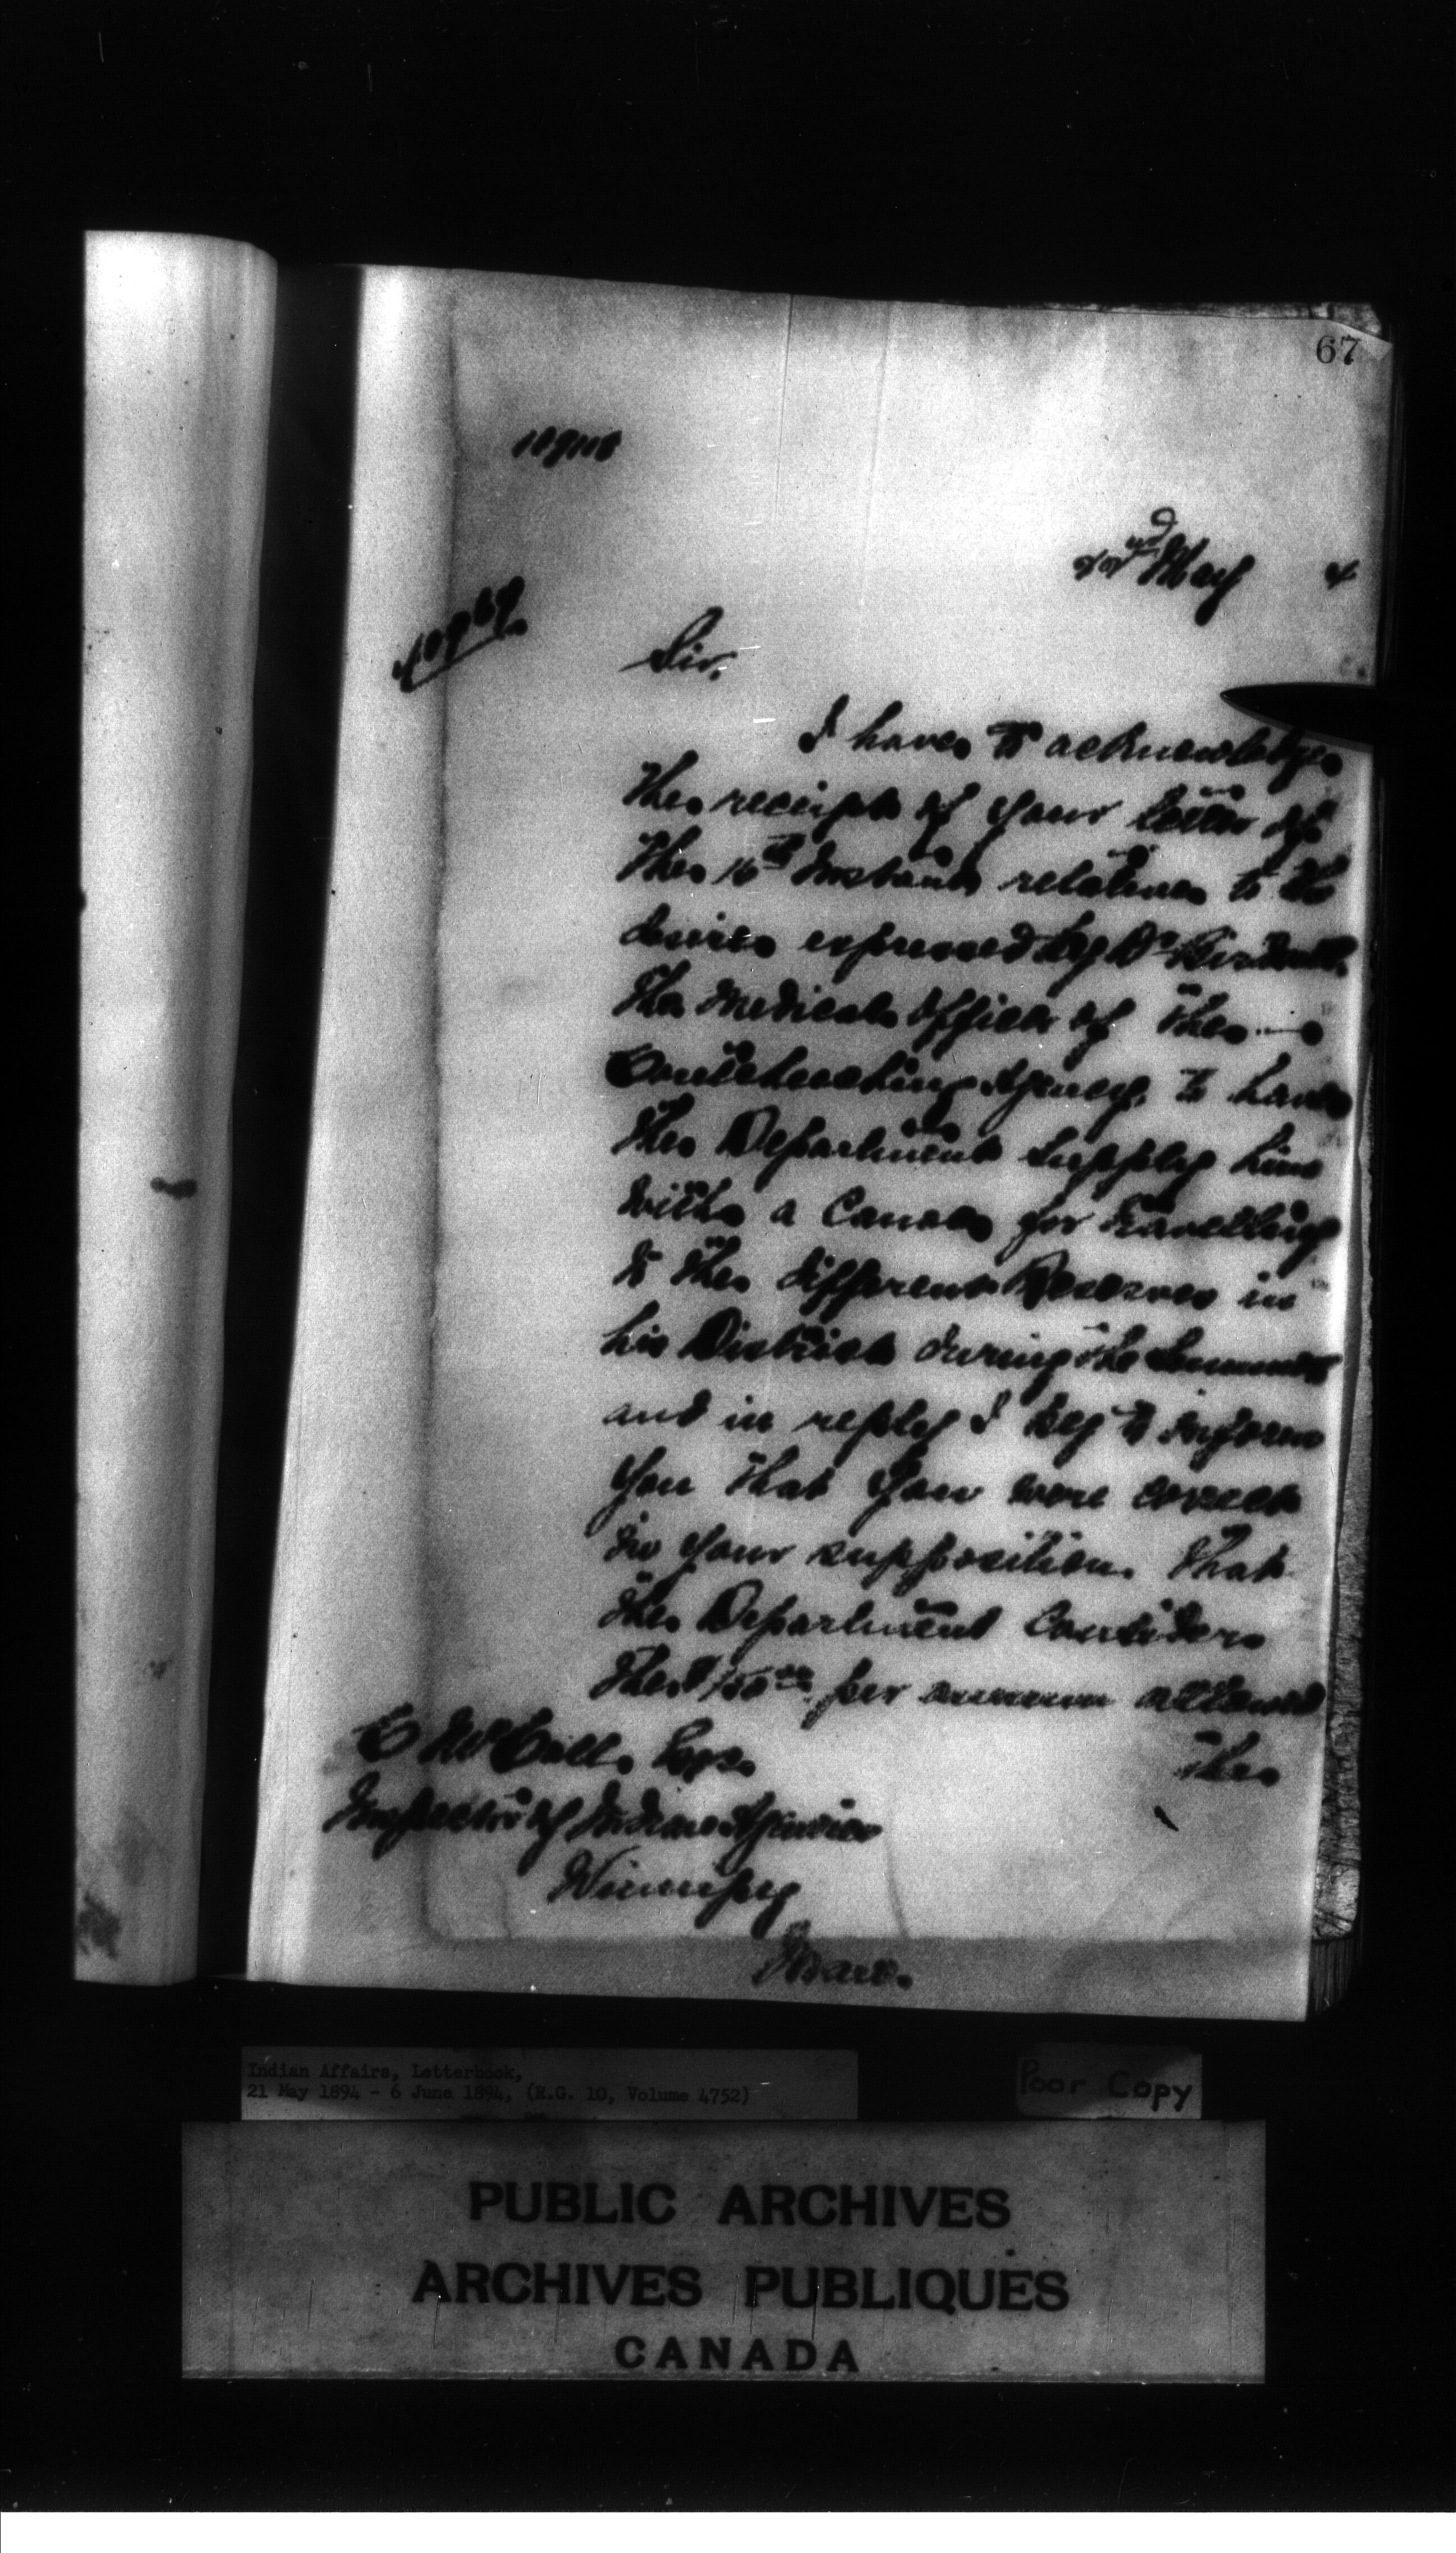 67
22nd May 4
Sir,
I have to acknowledge
the receipt of your letter of
the 16th Instant relative to the
desire expressed by Dr
the Medical Officer of the
Agency, to have
the Department supply him
with a Canoe for travelling
to the different Reserves in
his District during the Summer
and in reply I beg to inform
you that you were correct
in your supposition that
the Department considers
the $150 per annum allowed
the
E McColl, Esq.
Inspector of Indian Agencies
Winnipeg
Man.
Indian Affairs, Letterbook,
21 May 1894 - 6 June 1894, (R.G. 10, Volume 4752)
Poor Copy
PUBLIC ARCHIVES
ARCHIVES PUBLIQUES
CANADA